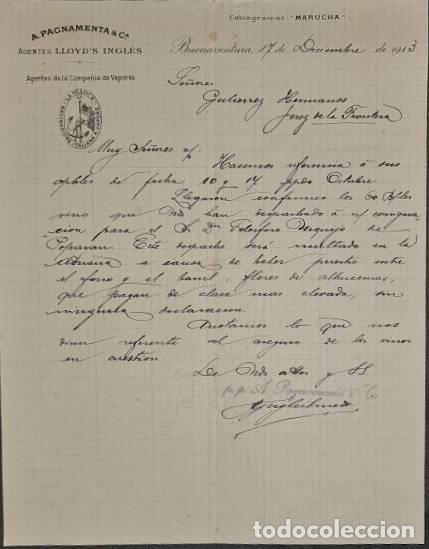 A. PAGNAMENTA & Ca.
AGENTES LLOYD'S INGLÉS
Agentes de la Compañia de Vapores
LA VELOCE
Cablogramas: "MARUCHA"
Buenaventura, 17 de Diciembre de 1913
Señores
Gutierrez Hermanos
Jerez de la Frontera
Muy Señores n/:
Hacemos referencia á sus
apbles de fecha 10 y 17 ppdo Octubre.
Llegaron conformes los 60 B/les
vino que Vds han despachado á n/ consigna-
cion para el S. Don Telesforo Urrejo de
Popayan. Este despacho será multado en la
Aduana a causa de haber puesto entre
el forro y el barril, flores de alhucemas,
que pagan de clase mas elevada, sin
ninguna declaracion.
Anotamos lo que nos
dicen referente al seguro de los vinos
en cuestion.
De Vds attos y SS
p. p. A. Pagnamenta & Co.
todocoleccion.net